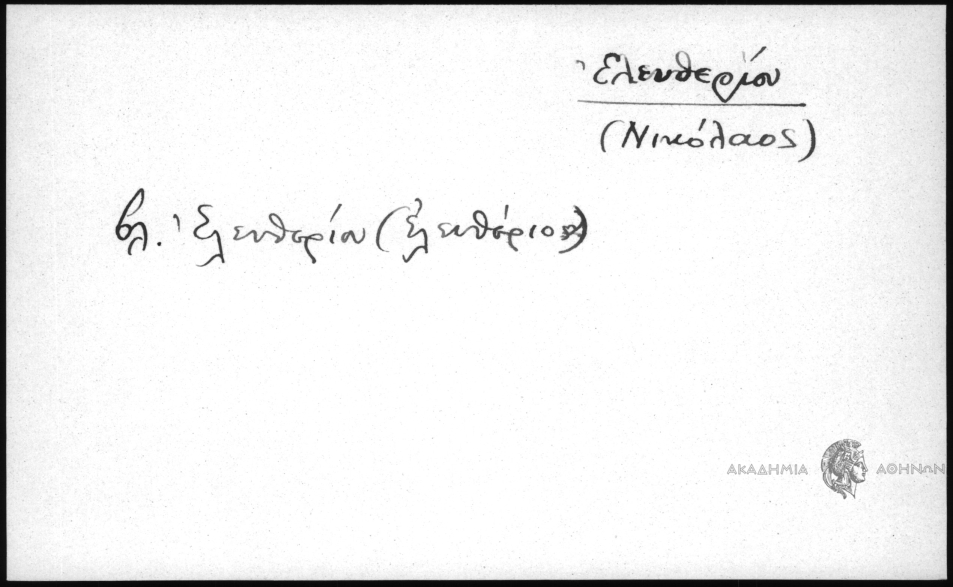 Ἐλευθερίου
(Νικόλαος)
βλ. Ἐλευθερίου (Ἐλευθέριος)
ΑΚΑΔΗΜΙΑ ΑΘΗΝΩΝ